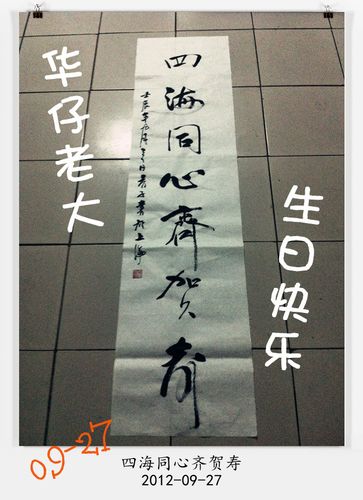 华仔老大
四海同心齊贺寿
壬辰年
生日快乐
09-27
四海同心齐贺寿
2012-09-27